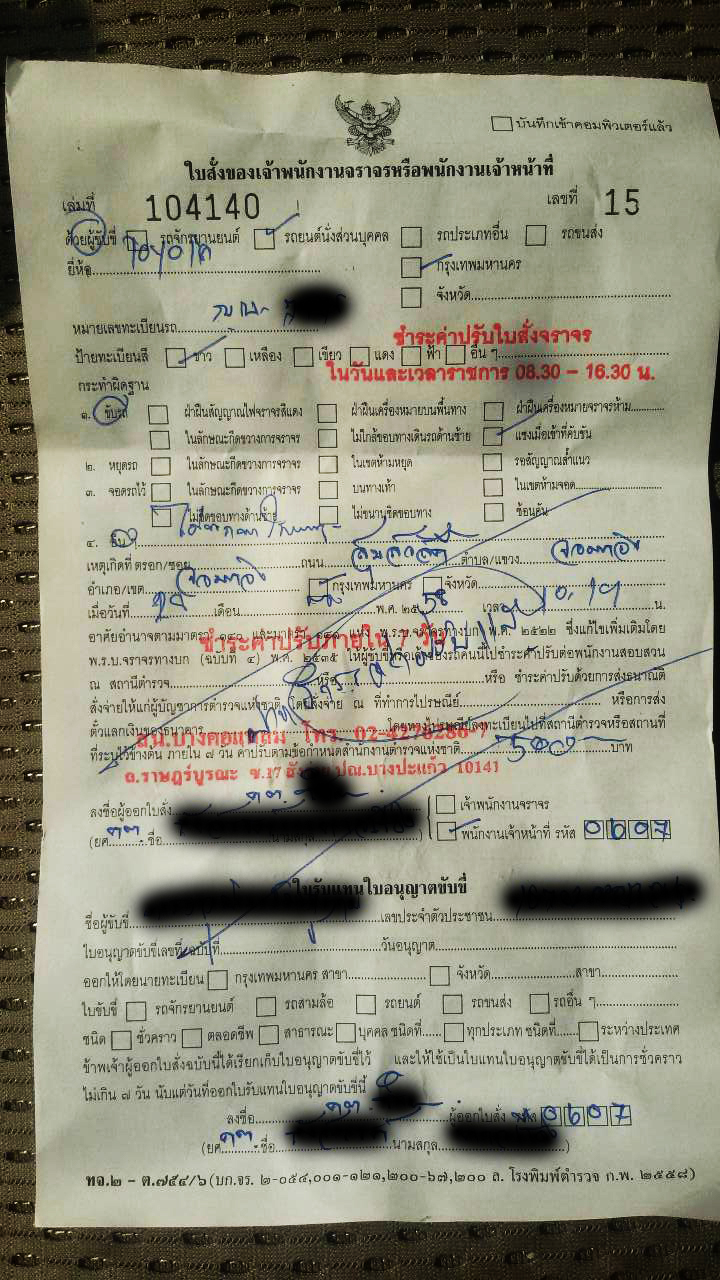 บันทึกเข้าคอมพิวเตอร์แล้ว
ใบสั่งของเจ้าพนักงานจราจรหรือพนักงานเจ้าหน้าที่
เล่มที่ 104140 เลขที่ 15
ด้วยผู้ขับขี่ รถจักรยานยนต์ รถยนต์นั่งส่วนบุคคล รถประเภทอื่น รถขนส่ง
ยี่ห้อ กรุงเทพมหานคร
จังหวัด
หมายเลขทะเบียนรถ
ชำระค่าปรับใบสั่งจราจร
ป้ายทะเบียนสี ขาว เหลือง เขียว แดง ฟ้า อื่น ๆ
ในวันและเวลาราชการ 08.30 - 16.30 น.
กระทำผิดฐาน
๑. ขับรถ ฝ่าฝืนสัญญาณไฟจราจรสีแดง ฝ่าฝืนเครื่องหมายบนพื้นทาง ฝ่าฝืนเครื่องหมายจราจรห้าม
ในลักษณะกีดขวางการจราจร ไม่ใกล้ขอบทางเดินรถด้านซ้าย แซงเมื่อเข้าที่คับขัน
๒. หยุดรถ ในลักษณะกีดขวางการจราจร ในเขตห้ามหยุด รอสัญญาณล้ำแนว
๓. จอดรถไว้ ในลักษณะกีดขวางการจราจร บนทางเท้า ในเขตห้ามจอด
ไม่ชิดขอบทางด้านซ้าย ไม่ขนานชิดขอบทาง ซ้อนคัน
๔. อื่น ๆ
เหตุเกิดที่ ตรอก/ซอย จอมทอง ถนน สุขสวัสดิ์ ตำบล/แขวง จอมทอง
อำเภอ/เขต กรุงเทพมหานคร จังหวัด
เมื่อวันที่ เดือน พ.ศ. ๒๕ 58 เวลา 10.19 น.
อาศัยอำนาจตามมาตรา ๑๔๐ และมาตรา ๑๔๑ แห่ง พ.ร.บ.จราจรทางบก พ.ศ. ๒๕๒๒ ซึ่งแก้ไขเพิ่มเติมโดย
ชำระค่าปรับภายใน 7 วัน
พ.ร.บ.จราจรทางบก (ฉบับที่ ๔) พ.ศ. ๒๕๓๕ ให้ผู้ขับขี่หรือเจ้าของรถคันนี้ไปชำระค่าปรับต่อพนักงานสอบสวน
ณ สถานีตำรวจ หรือ หรือ ชำระค่าปรับด้วยการส่งธนาณัติ
สั่งจ่ายให้แก่ผู้บัญชาการตำรวจแห่งชาติ โดยส่งจ่าย ณ ที่ทำการไปรษณีย์ หรือการส่ง
ตั๋วแลกเงินของธนาคาร โดยทางไปรษณีย์ลงทะเบียนไปที่สถานีตำรวจหรือสถานที่
ส.น.บางคอแหลม โทร. 02-4276286-7
ที่ระบุไว้ข้างต้น ภายใน ๗ วัน ค่าปรับตามข้อกำหนดสำนักงานตำรวจแห่งชาติ 500 บาท
ถ.ราษฎร์บูรณะ ซ.17 ปณ.บางปะแก้ว 10141
ลงชื่อผู้ออกใบสั่ง ด.ต. เจ้าพนักงานจราจร
(ยศ ด.ต. ชื่อ ) พนักงานเจ้าหน้าที่ รหัส 0607
ใบรับแทนใบอนุญาตขับขี่
ชื่อผู้ขับขี่ เลขประจำตัวประชาชน
ใบอนุญาตขับขี่เลขที่/ฉบับที่ วันอนุญาต
ออกให้โดยนายทะเบียน กรุงเทพมหานคร สาขา จังหวัด สาขา
ใบขับขี่ รถจักรยานยนต์ รถสามล้อ รถยนต์ รถขนส่ง รถอื่น ๆ
ชนิด ชั่วคราว ตลอดชีพ สาธารณะ บุคคล ชนิดที่ ทุกประเภท ชนิดที่ ระหว่างประเทศ
ข้าพเจ้าผู้ออกใบสั่งฉบับนี้ได้เรียกเก็บใบอนุญาตขับขี่ไว้ และให้ใช้เป็นใบแทนใบอนุญาตขับขี่ได้เป็นการชั่วคราว
ไม่เกิน ๗ วัน นับแต่วันที่ออกใบรับแทนใบอนุญาตขับขี่นี้
ลงชื่อ ด.ต. ผู้ออกใบสั่ง รหัส 0607
(ยศ ด.ต. ชื่อ นามสกุล )
ทจ.๒ - ต.๗๕๔/๖ (บก.จร. ๒-๐๕๔,๐๐๑-๑๒๑,๒๐๐-๖๗,๒๐๐ ล. โรงพิมพ์ตำรวจ ก.พ. ๒๕๕๘)